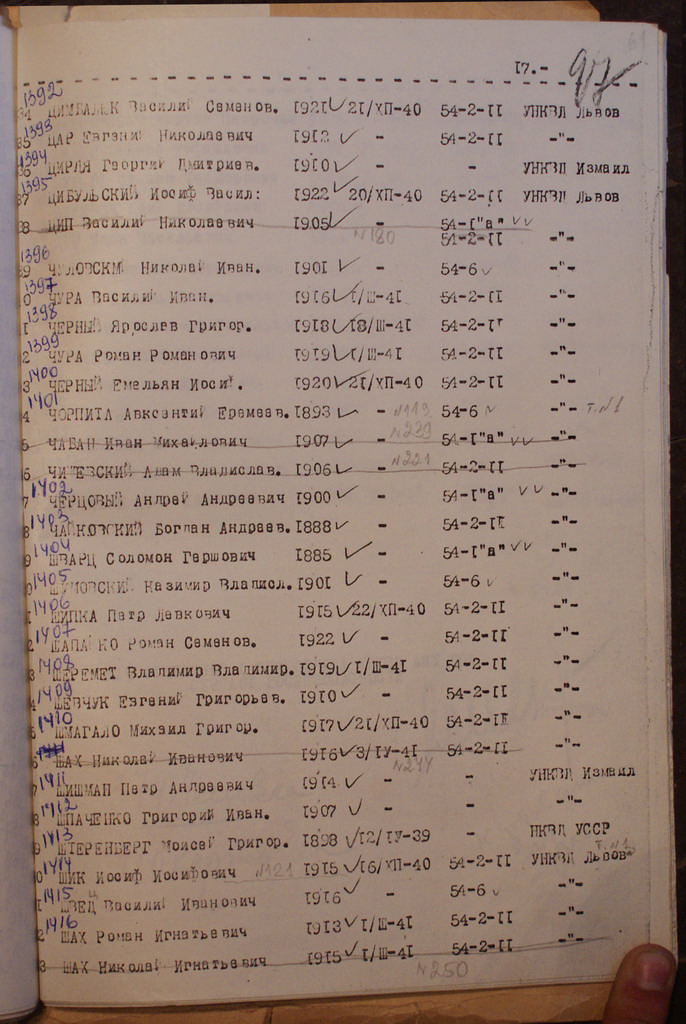 17.- 97
1392 ЦИМБАЛЮК Василий Семенов. 1921 ✓ 21/ХП-40 54-2-II УНКВД Львов
1393 ЦАР Евгений Николаевич 1912 ✓ - 54-2-II -"-
1394 ЦИРЛЯ Георгий Дмитриев. 1910 ✓ - - УНКВД Измаил
1395 ЦИБУЛЬСКИЙ Иосиф Васил: 1922 ✓ 20/ХП-40 54-2-II УНКВД Львов
8 ЦИП Василий Николаевич 1905 ✓ - 54-I"а" ✓✓
№180 54-2-II -"-
1396 Николай Иван. 1901 ✓ - 54-6 ✓ -"-
1397 ЧУРА Василий Иван. 1916 ✓ I/Ш-41 54-2-II -"-
1398 ЧЕРНЫЙ Ярослев Григор. 1918 ✓ 18/Ш-41 54-2-II -"-
1399 2 ЧУРА Роман Романович 1919 ✓ I/Ш-41 54-2-II -"-
1400 3 ЧЕРНЫЙ Емельян Иосиф. 1920 ✓ 21/ХП-40 54-2-II -"-
1401 4 ЧОРПИТА Авксентий Еремеев. 1893 ✓ - №113 54-6 ✓ -"- т.№1
5 ЧАБАН Иван Михайлович 1907 ✓ - №239 54-I"а" ✓✓ -"-
6 Адам Владислав. 1906 ✓ - №221 54-2-II -"-
1402 7 ЧЕРЦОВЫЙ Андрей Андреевич 1900 ✓ - 54-I"а" ✓✓ -"-
1403 8 ЧАЙКОВСКИЙ Богдан Андреев. 1888 ✓ - 54-2-II -"-
1404 9 ШВАРЦ Соломон Гершович 1885 ✓ - 54-I"а" ✓✓ -"-
1405 ШУМОВСКИЙ Казимир Владисл. 1901 ✓ - 54-6 ✓ -"-
1406 ШИПКА Петр Левкович 1915 ✓ 22/ХП-40 54-2-II -"-
1407 2 ШАПАЙКО Роман Семенов. 1922 ✓ - 54-2-II -"-
1408 3 ШЕРЕМЕТ Владимир Владимир. 1919 ✓ I/Ш-41 54-2-II -"-
1409 4 ШЕВЧУК Евгений Григорьев. 1910 ✓ - 54-2-II -"-
1410 5 ШМАГАЛО Михаил Григор. 1917 ✓ 21/ХП-40 54-2-II -"-
6 ШАХ Николай Иванович 1916 ✓ 3/IУ-41 54-2-II -"-
№244
1411 7 ШИШМАН Петр Андреевич 1914 ✓ - - УНКВД Измаил
1412 8 ШПАЧЕНКО Григорий Иван. 1907 ✓ - - -"-
1413 9 ШТЕРЕНБЕРГ Моисей Григор. 1898 ✓ 12/IУ-39 - НКВД УССР
1414 0 ШИК Иосиф Иосифович №121 1915 ✓ 16/ХП-40 54-2-II УНКВД Львов т.№1
1415 1 ШВЕЦ Василий Иванович 1916 ✓ - 54-6 ✓ -"-
1416 2 ШАХ Роман Игнатьевич 1913 ✓ I/Ш-41 54-2-II -"-
3 ШАХ Николай Игнатьевич 1915 ✓ I/Ш-41 54-2-II -"-
№250